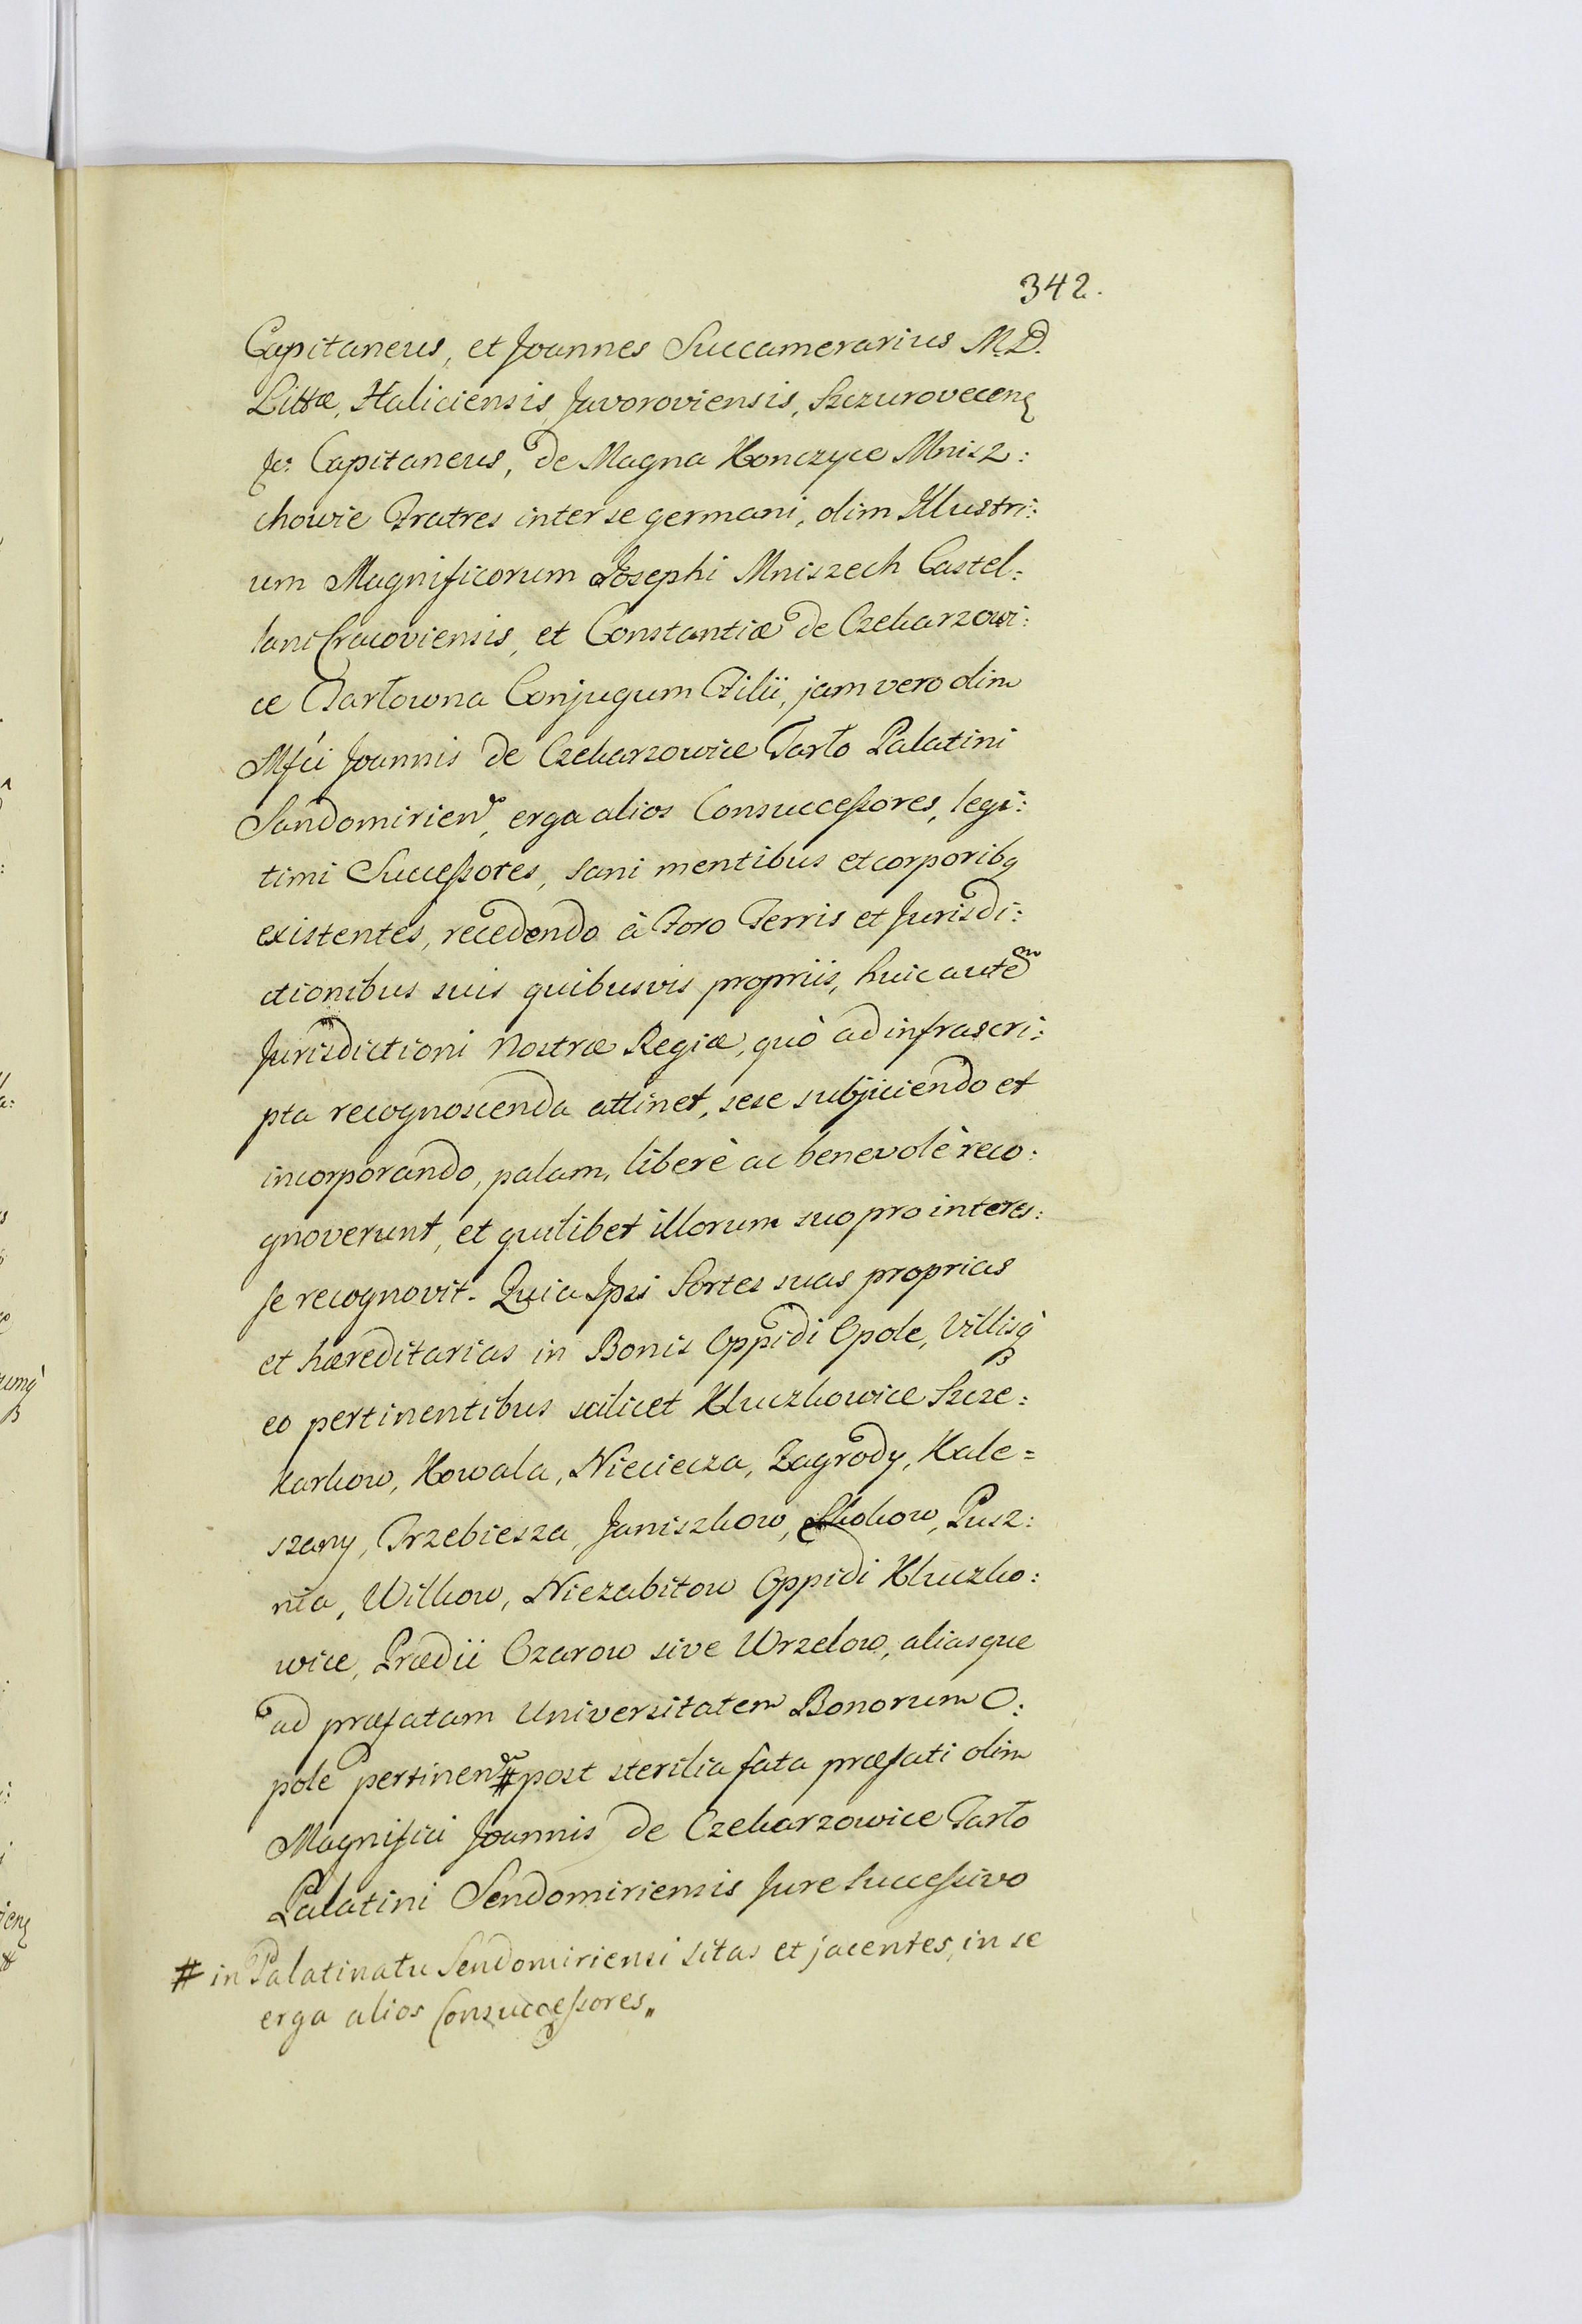 342.
Capitaneus, et Joannes Succamerarius M.D.
Littæ, Haliciensis Javoroviensis, Szczurovecen
&c: Capitaneus, de Magna Konczyce Mnisz:
chowie Fratres inter se germani, olim Illustri:
um Magnificorum Josephi Mniszech Castel:
lani Cracoviensis, et Constantiæ de Czekarzowi:
ce Tarłowna Conjugum Filii, jam vero olim
Mfci Joannis de Czekarzowice Tarło Palatini
Sandomirien, erga alios Consuccessores, legi:
timi Successores, sani mentibus et corporibq
existentes, recedendo à Foro Terris et Jurisdi:
ctionibus suis quibusvis propriis, huic autem
Jurisdictioni Nostræ Regiæ, quò ad infrascri:
pta recognoscenda attinet, sese subjiciendo et
incorporando, palam, liberè ac benevolè reco:
gnoverunt, et quilibet illorum suo pro interes:
se recognovit. Quia Ipsi Sortes suas proprias
et hæreditarias in Bonis Oppidi Opole, Villisq
eo pertinentibus scilicet Kluczkowice Szcze:
karkow, Kowala, Nieciecza, Zagrody, Kale=
szany, Trzebiesza, Janiszkow, Skokow, Pusz:
nia, Wilkow, Niezabitow Oppidi Kluczko:
wice, Prædii Ozarow sive Wrzelow, aliasque
ad præfatam Universitatem Bonorum O:
pole pertinen # post sterilia fata præfati olim
Magnifici Joannis de Czekarzowice Tarło
Palatini Sendomiriensis Jure Successivo
# in Palatinatu Sendomiriensi sitas et jacentes, in se
erga alios Consuccessores„